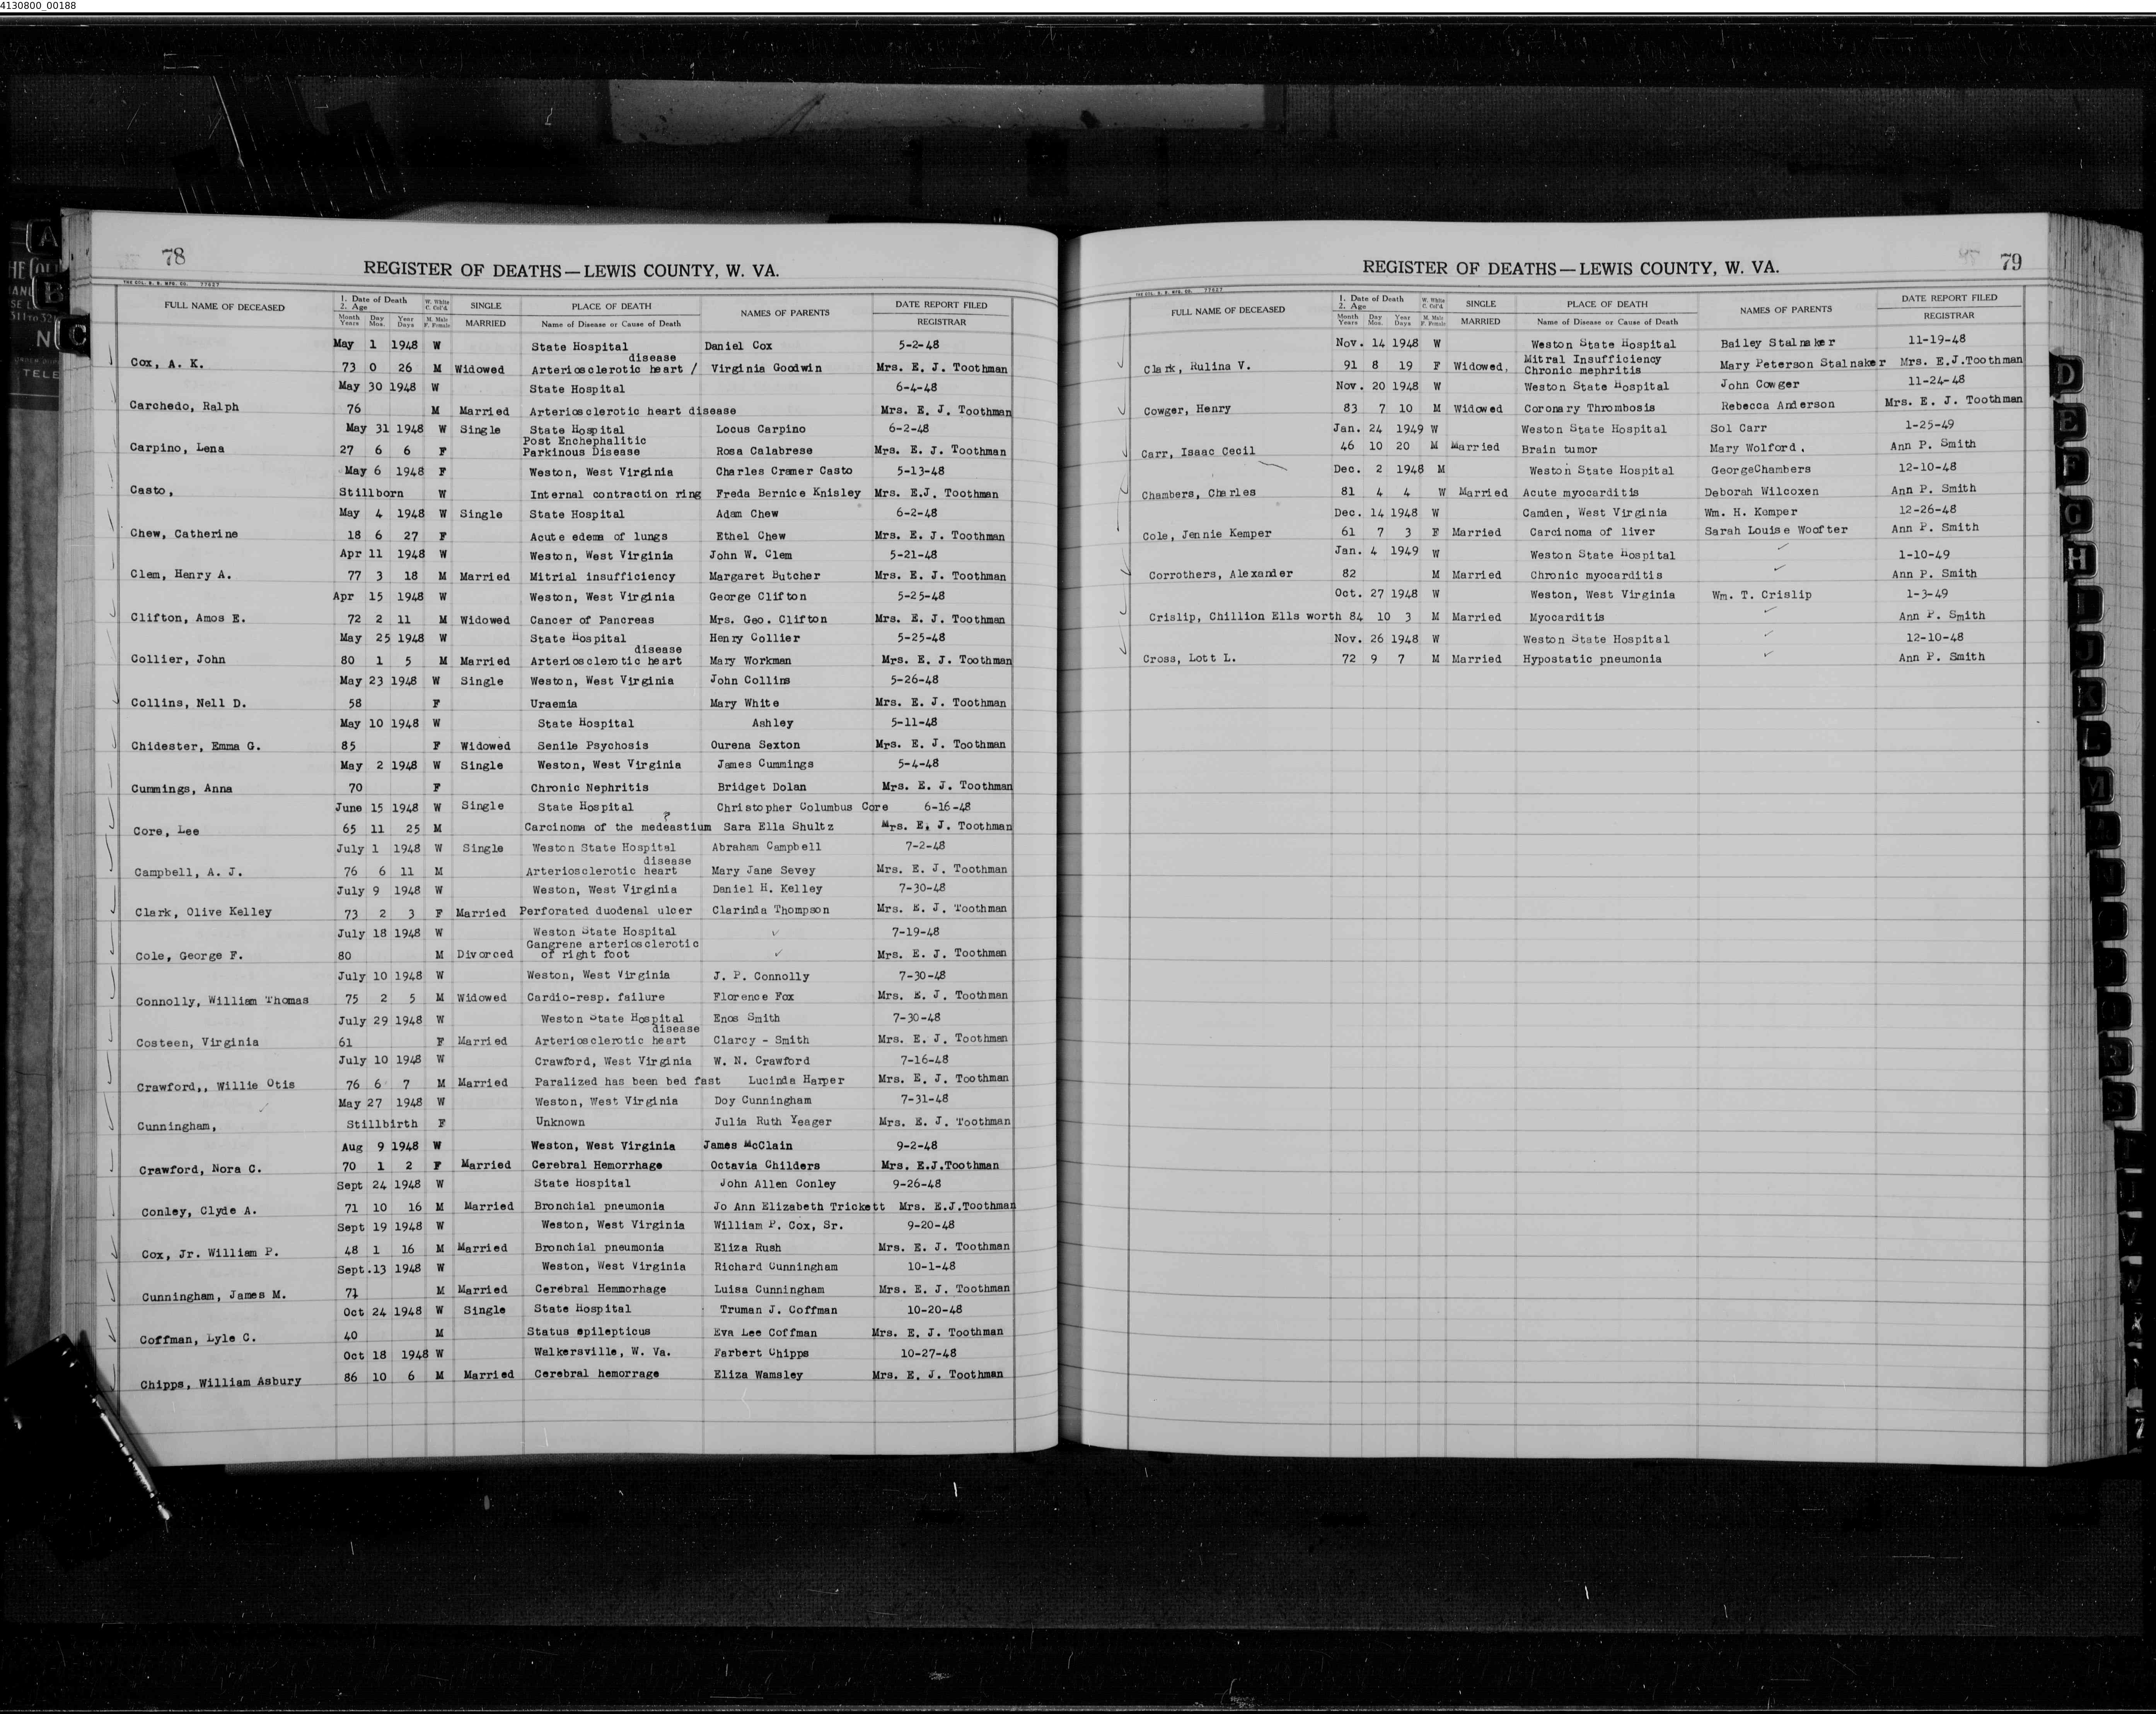 4130800_00188
78
REGISTER OF DEATHS—LEWIS COUNTY, W. VA.
THE COL. B. B. MFG. CO. 77627
FULL NAME OF DECEASED 1. Date of Death 2. Age W. White C. Col'd. SINGLE PLACE OF DEATH NAMES OF PARENTS DATE REPORT FILED
Month Years Day Mos. Year Days M. Male F. Female MARRIED Name of Disease or Cause of Death REGISTRAR
May 1 1948 W State Hospital Daniel Cox 5-2-48
disease
Cox, A. K. 73 0 26 M Widowed Arteriosclerotic heart / Virginia Goodwin Mrs. E. J. Toothman
May 30 1948 W State Hospital 6-4-48
Carchedo, Ralph 76 M Married Arteriosclerotic heart disease Mrs. E. J. Toothman
May 31 1948 W Single State Hospital Locus Carpino 6-2-48
Post Enchephalitic
Carpino, Lena 27 6 6 F Parkinous Disease Rosa Calabrese Mrs. E. J. Toothman
May 6 1948 F Weston, West Virginia Charles Cramer Casto 5-13-48
Casto, Stillborn W Internal contraction ring Freda Bernice Knisley Mrs. E.J. Toothman
May 4 1948 W Single State Hospital Adam Chew 6-2-48
Chew, Catherine 18 6 27 F Acute edema of lungs Ethel Chew Mrs. E. J. Toothman
Apr 11 1948 W Weston, West Virginia John W. Clem 5-21-48
Clem, Henry A. 77 3 18 M Married Mitrial insufficiency Margaret Butcher Mrs. E. J. Toothman
Apr 15 1948 W Weston, West Virginia George Clifton 5-25-48
Clifton, Amos E. 72 2 11 M Widowed Cancer of Pancreas Mrs. Geo. Clifton Mrs. E. J. Toothman
May 25 1948 W State Hospital Henry Collier 5-25-48
disease
Collier, John 80 1 5 M Married Arteriosclerotic heart Mary Workman Mrs. E. J. Toothman
May 23 1948 W Single Weston, West Virginia John Collins 5-26-48
Collins, Nell D. 58 F Uraemia Mary White Mrs. E. J. Toothman
May 10 1948 W State Hospital Ashley 5-11-48
Chidester, Emma G. 85 F Widowed Senile Psychosis Ourena Sexton Mrs. E. J. Toothman
May 2 1948 W Single Weston, West Virginia James Cummings 5-4-48
Cummings, Anna 70 F Chronic Nephritis Bridget Dolan Mrs. E. J. Toothman
June 15 1948 W Single State Hospital Christopher Columbus Core 6-16-48
?
Core, Lee 65 11 25 M Carcinoma of the medeastium Sara Ella Shultz Mrs. E. J. Toothman
July 1 1948 W Single Weston State Hospital Abraham Campbell 7-2-48
disease
Campbell, A. J. 76 6 11 M Arteriosclerotic heart Mary Jane Sevey Mrs. E. J. Toothman
July 9 1948 W Weston, West Virginia Daniel H. Kelley 7-30-48
Clark, Olive Kelley 73 2 3 F Married Perforated duodenal ulcer Clarinda Thompson Mrs. E. J. Toothman
July 18 1948 W Weston State Hospital 7-19-48
Gangrene arteriosclerotic
Cole, George F. 80 M Divorced of right foot Mrs. E. J. Toothman
July 10 1948 W Weston, West Virginia J. P. Connolly 7-30-48
Connolly, William Thomas 75 2 5 M Widowed Cardio-resp. failure Florence Fox Mrs. E. J. Toothman
July 29 1948 W Weston State Hospital Enos Smith 7-30-48
disease
Costeen, Virginia 61 F Married Arteriosclerotic heart Clarcy - Smith Mrs. E. J. Toothman
July 10 1948 W Crawford, West Virginia W. N. Crawford 7-16-48
Crawford,, Willie Otis 76 6 7 M Married Paralized has been bed fast Lucinda Harper Mrs. E. J. Toothman
May 27 1948 W Weston, West Virginia Doy Cunningham 7-31-48
Cunningham, Stillbirth F Unknown Julia Ruth Yeager Mrs. E. J. Toothman
Aug 9 1948 W Weston, West Virginia James McClain 9-2-48
Crawford, Nora C. 70 1 2 F Married Cerebral Hemorrhage Octavia Childers Mrs. E.J.Toothman
Sept 24 1948 W State Hospital John Allen Conley 9-26-48
Conley, Clyde A. 71 10 16 M Married Bronchial pneumonia Jo Ann Elizabeth Trickett Mrs. E.J.Toothman
Sept 19 1948 W Weston, West Virginia William P. Cox, Sr. 9-20-48
Cox, Jr. William P. 48 1 16 M Married Bronchial pneumonia Eliza Rush Mrs. E. J. Toothman
Sept.13 1948 W Weston, West Virginia Richard Cunningham 10-1-48
Cunningham, James M. 71 M Married Cerebral Hemmorhage Luisa Cunningham Mrs. E. J. Toothman
Oct 24 1948 W Single State Hospital Truman J. Coffman 10-20-48
Coffman, Lyle C. 40 M Status epilepticus Eva Lee Coffman Mrs. E. J. Toothman
Oct 18 1948 W Walkersville, W. Va. Farbert Chipps 10-27-48
Chipps, William Asbury 86 10 6 M Married Cerebral hemorrage Eliza Wamsley Mrs. E. J. Toothman
79
REGISTER OF DEATHS—LEWIS COUNTY, W. VA.
THE COL. B. B. MFG. CO. 77627
FULL NAME OF DECEASED 1. Date of Death 2. Age W. White C. Col'd. SINGLE PLACE OF DEATH NAMES OF PARENTS DATE REPORT FILED
Month Years Day Mos. Year Days M. Male F. Female MARRIED Name of Disease or Cause of Death REGISTRAR
Nov. 14 1948 W Weston State Hospital Bailey Stalnaker 11-19-48
Mitral Insufficiency
Clark, Rulina V. 91 8 19 F Widowed, Chronic nephritis Mary Peterson Stalnaker Mrs. E.J.Toothman
Nov. 20 1948 W Weston State Hospital John Cowger 11-24-48
Cowger, Henry 83 7 10 M Widowed Coronary Thrombosis Rebecca Anderson Mrs. E. J. Toothman
Jan. 24 1949 W Weston State Hospital Sol Carr 1-25-49
Carr, Isaac Cecil 46 10 20 M Married Brain tumor Mary Wolford. Ann P. Smith
Dec. 2 1948 M Weston State Hospital GeorgeChambers 12-10-48
Chambers, Charles 81 4 4 W Married Acute myocarditis Deborah Wilcoxen Ann P. Smith
Dec. 14 1948 W Camden, West Virginia Wm. H. Kemper 12-26-48
Cole, Jennie Kemper 61 7 3 F Married Carcinoma of liver Sarah Louise Woofter Ann P. Smith
Jan. 4 1949 W Weston State Hospital 1-10-49
Corrothers, Alexander 82 M Married Chronic myocarditis Ann P. Smith
Oct. 27 1948 W Weston, West Virginia Wm. T. Crislip 1-3-49
Crislip, Chillion Ells worth 84 10 3 M Married Myocarditis Ann P. Smith
Nov. 26 1948 W Weston State Hospital 12-10-48
Cross, Lott L. 72 9 7 M Married Hypostatic pneumonia Ann P. Smith
A
B
C
D
E
F
G
H
I
J
K
L
M